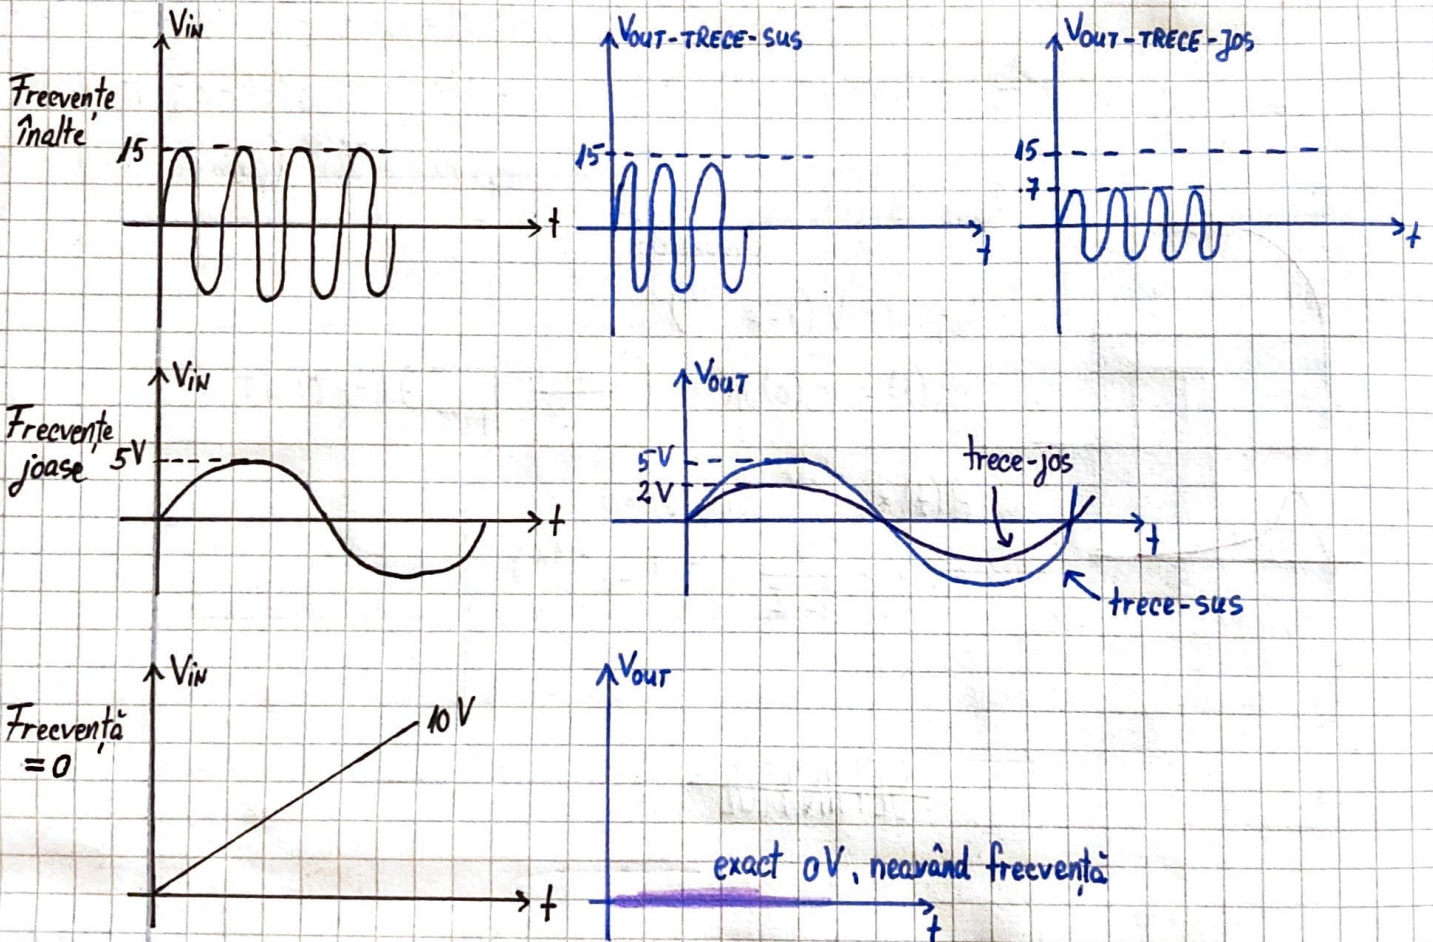 Frecvențe
înalte
VIN
15
t
VOUT-TRECE-SUS
15
t
VOUT-TRECE-JOS
15
7
t
Frecvențe
joase
VIN
5V
t
VOUT
5V
2V
trece-jos
t
trece-sus
Frecvență
=0
VIN
10V
t
VOUT
exact 0V, neavând frecvență
t